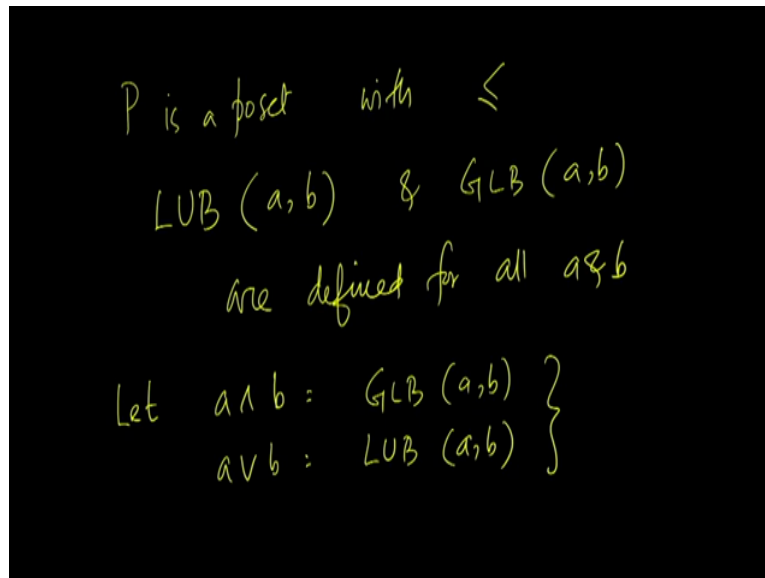 P is a poset with ≤
LUB (a,b) & GLB (a,b)
are defined for all a&b
Let a∧b = GLB (a,b) }
a∨b = LUB (a,b)